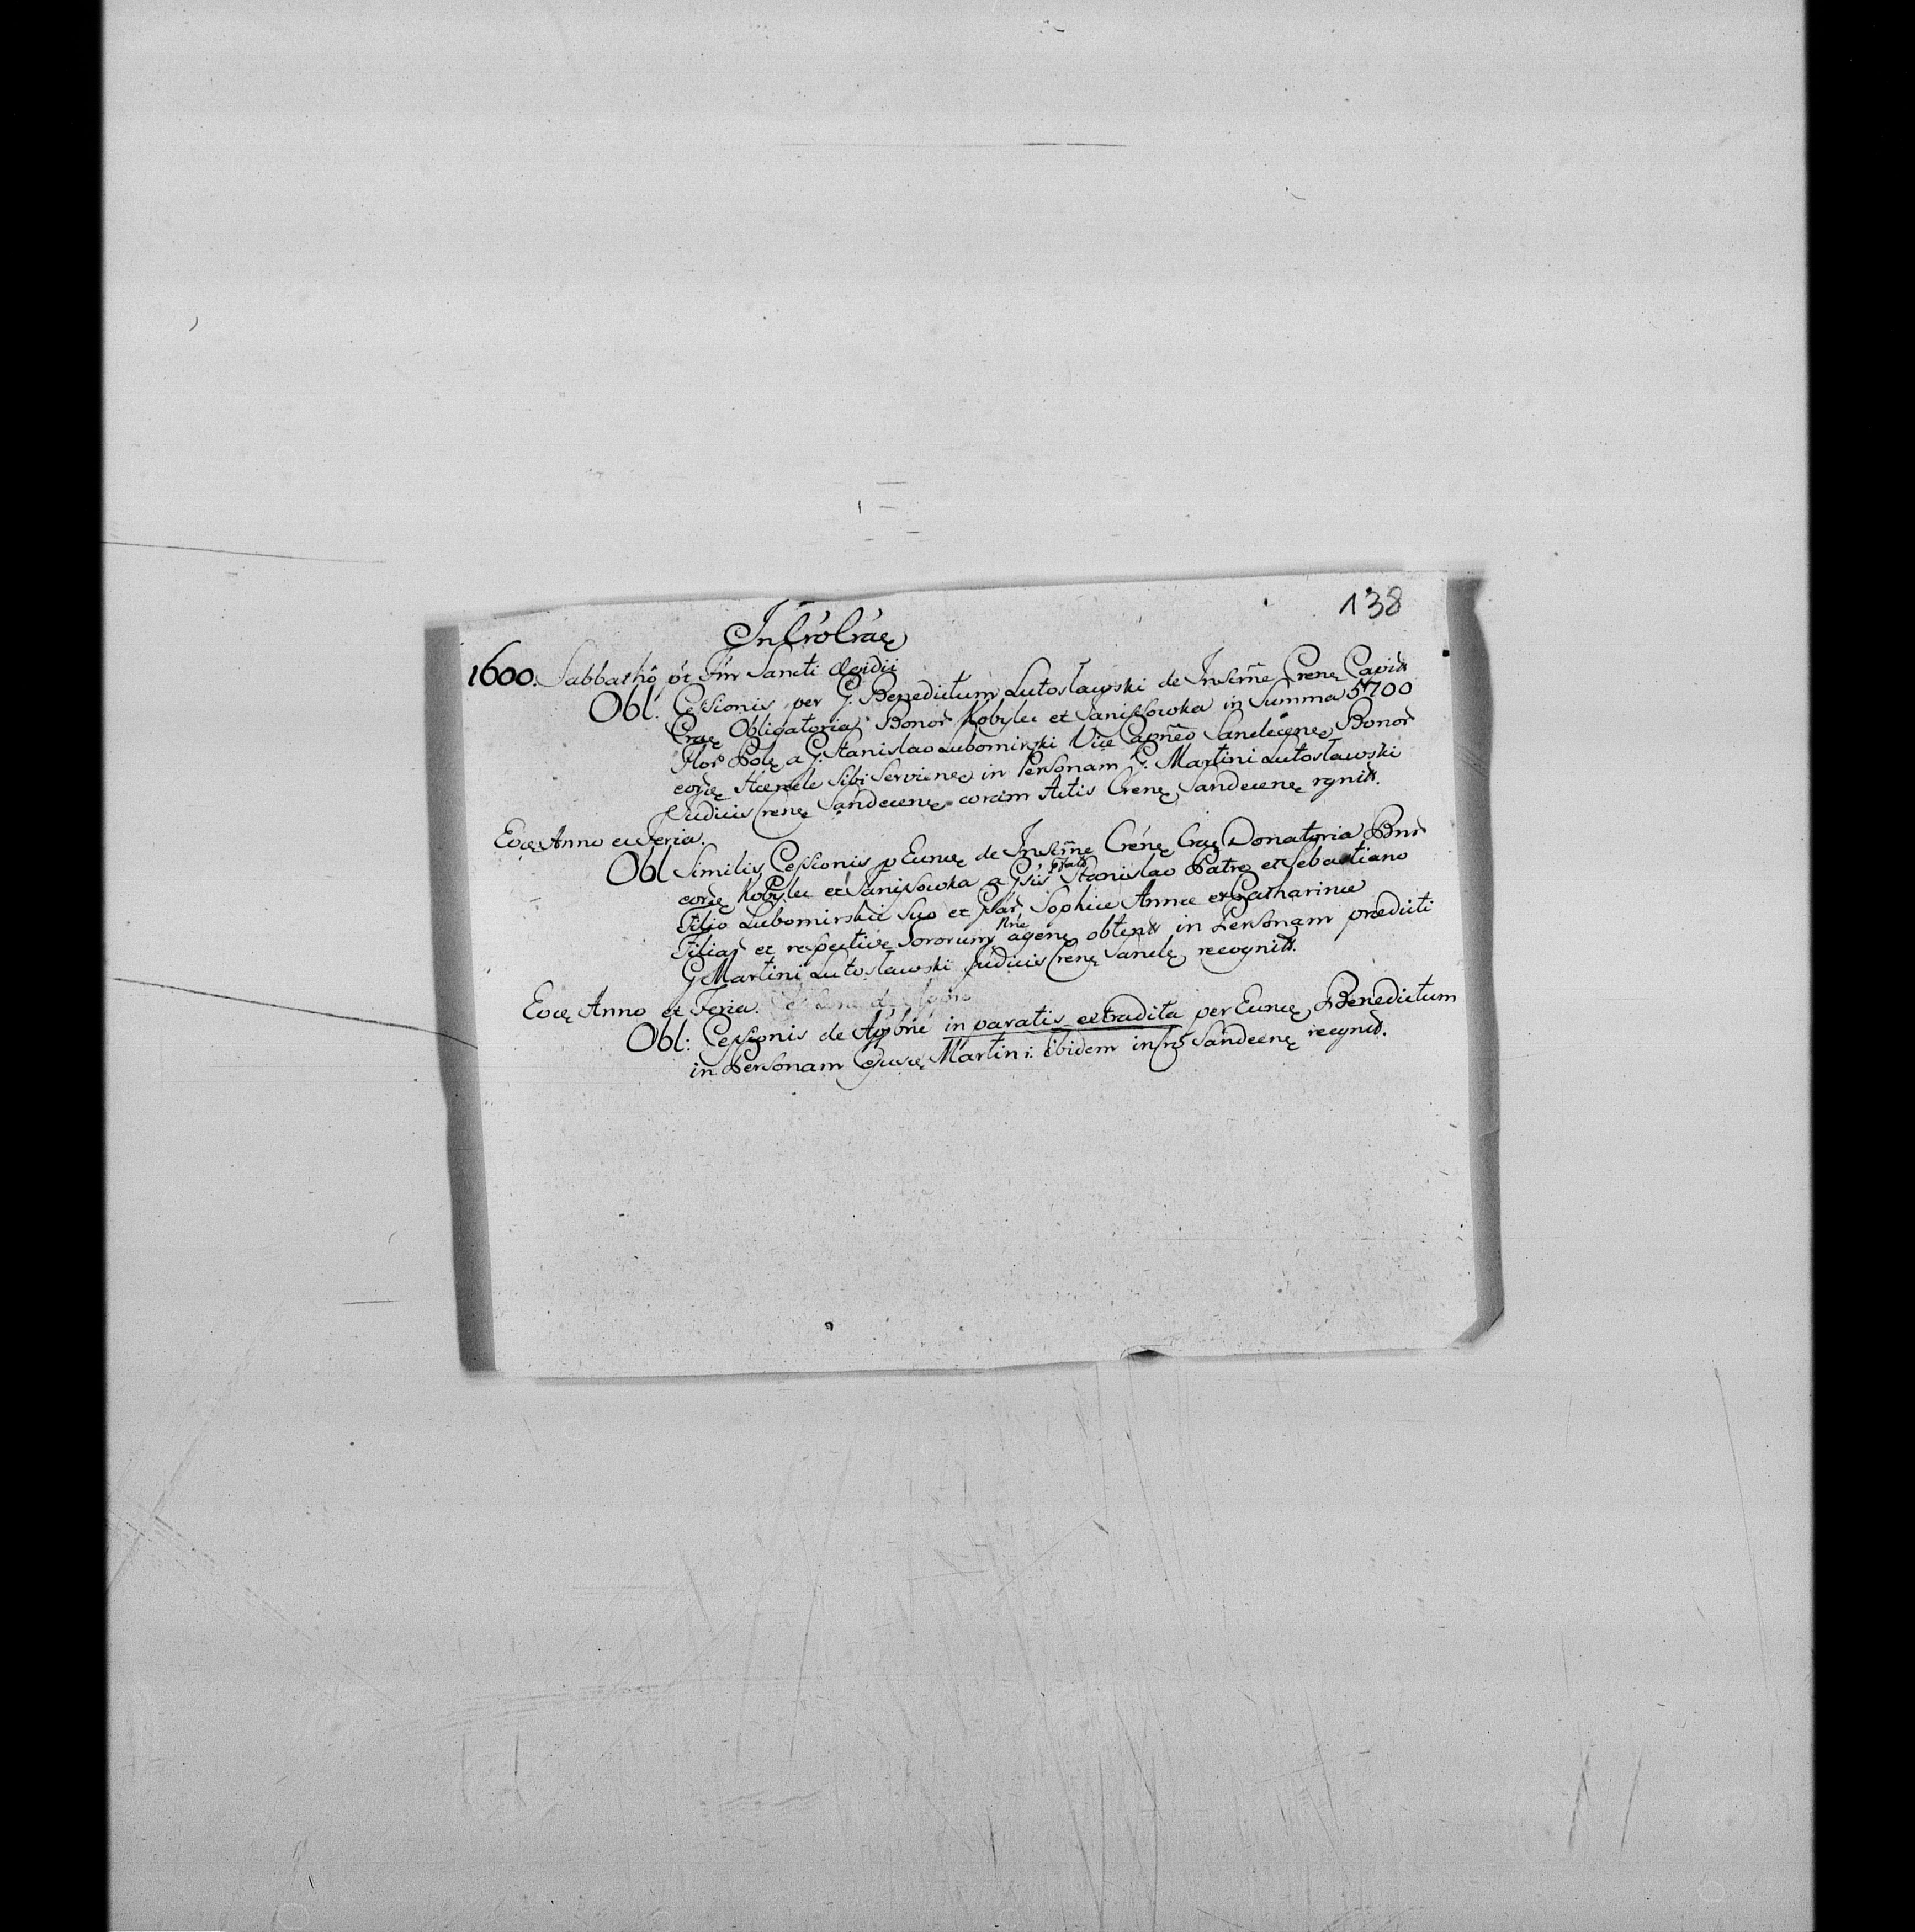 138
In Cro Crac
1600. Sabbatho pt Fm Sancti Ægidii
Obl. Cessionis per G. Benedictum Lutosławski de Inscrne Crenę
Crae Obligatoria Bonor Kobylec et Janissowka in Summa 5700
Flor Pole a G. Stanislao Lubomirski Vice Capneo Sandecene Bonor
eorę sibi Serviene in Personam G. Martini Lutosławski
Judicis Crenę Sandecenę coram Actis Crenę Sandecenę rgnitt.
Eoę Anno et Feria.
Obl Similis Cessionis p Eunę de Inscrne Crenę Crae Donatoria Bnr
eorę Kobylec et Janissowka a Gsis Stanislao Patre et Sebastiano
Filio Lubomirskie suo et Sophiæ Annæ et Catharinæ
Filiar et respective Sororum Nne agenę obtentt in Personam prædicti
G Martini Lutosławski Judicis Crenę Sandę recognitt.
Eoę Anno et Feria.
Obl: Cessionis de in paratis extradita per Eunę Benedictum
in Personam Martini ibidem in Sandecenę recgnitt.